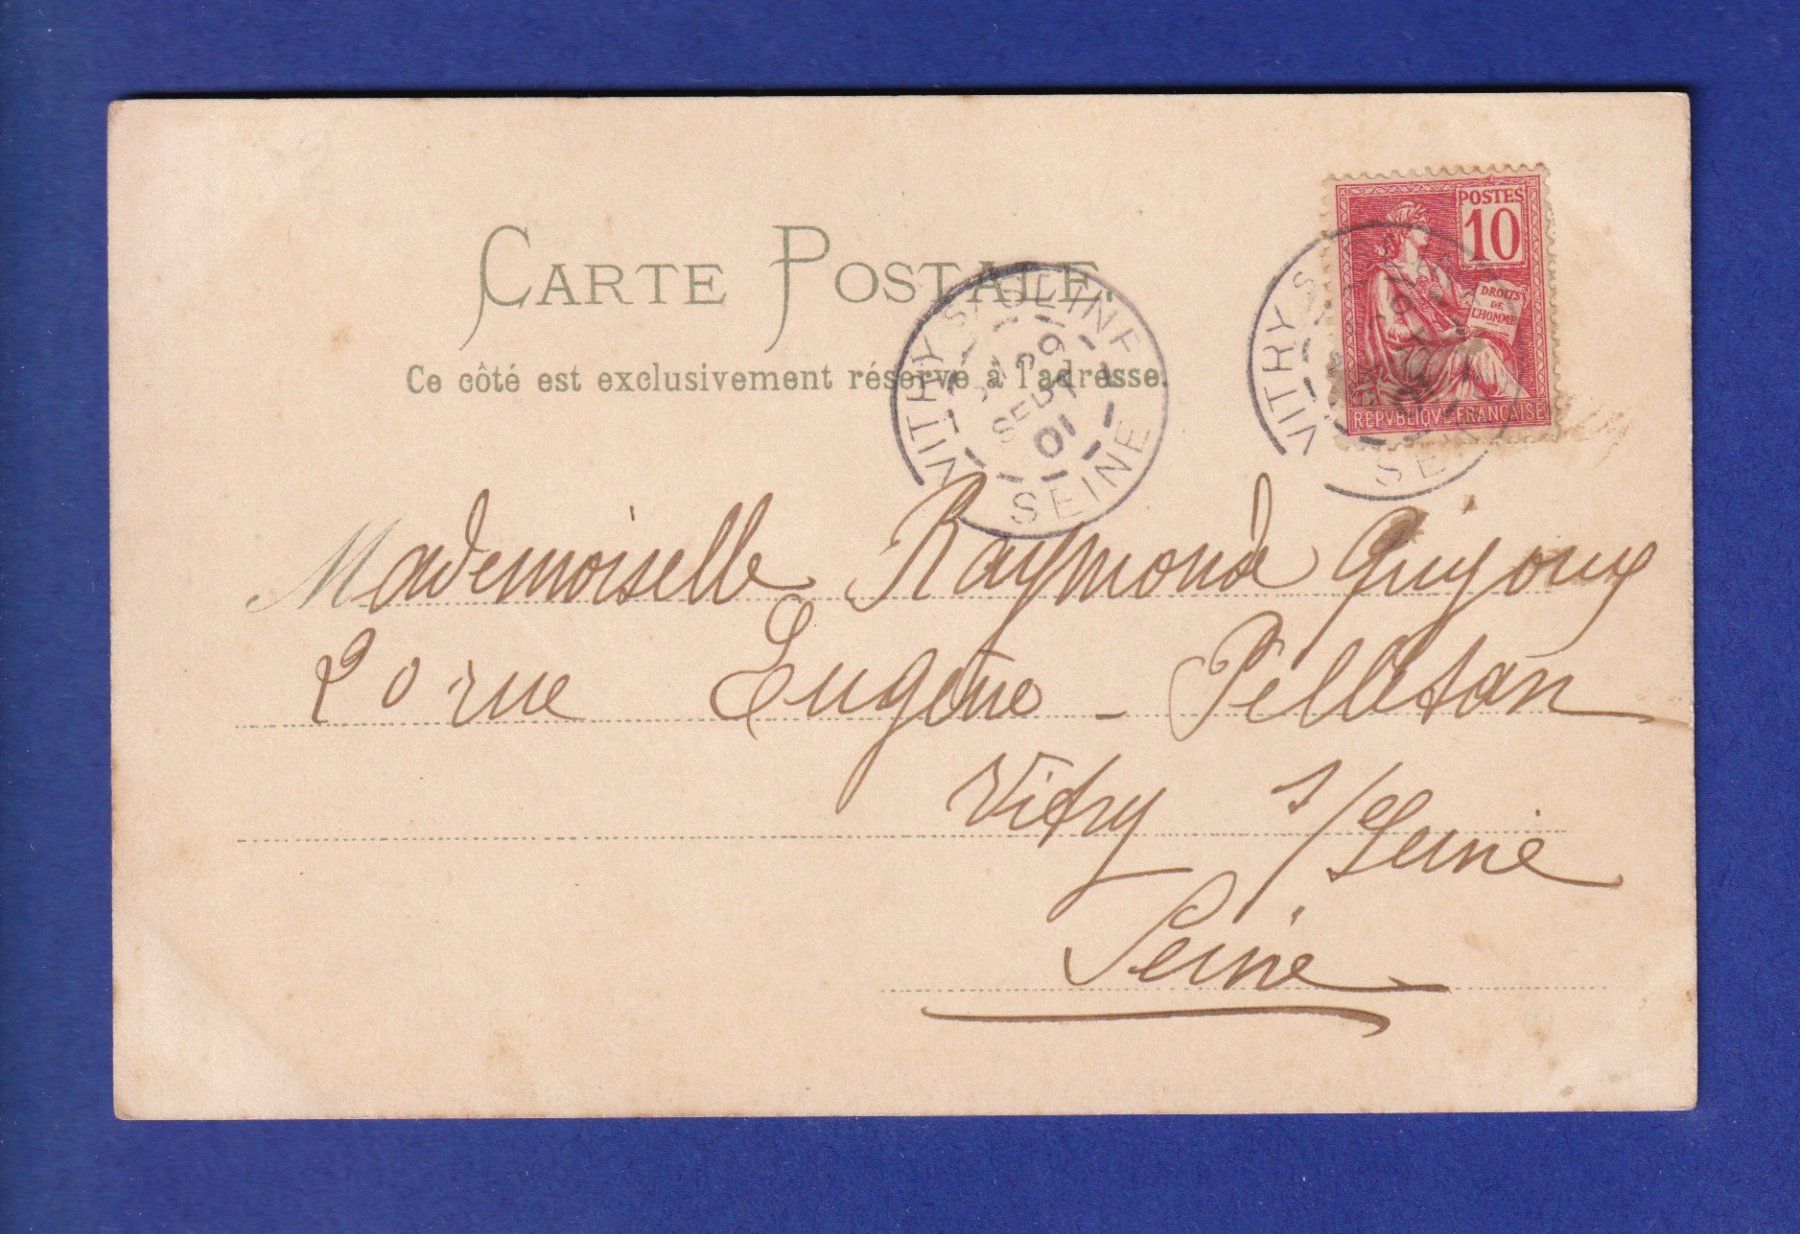 CARTE POSTALE.
Ce côté est exclusivement réservé à l'adresse.
POSTES
10
DROITS
DE
L'HOMME
REPVBLIQVE FRANÇAISE
VITRY S/ SEINE
SEPT
01
SEINE
VITRY S
SE
Mademoiselle Raymonde
20 rue Eugène - Pelletan
Vitry s/Seine
Seine